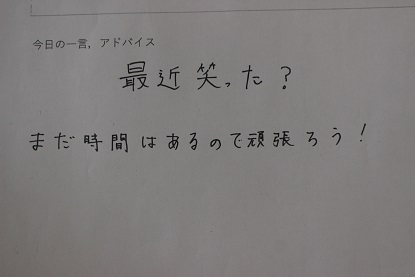 今日の一言，アドバイス
最近笑った？
まだ時間はあるので頑張ろう！